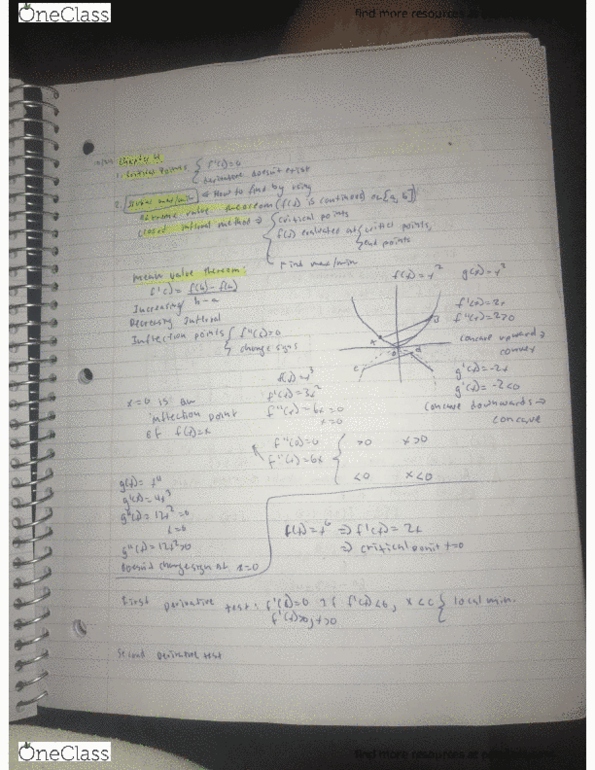 OneClass
find more resources at
Chapter 4
1. Critical points { f'(x)=0
derivative doesn't exist
2. → How to find by using
extreme value theorem (f(x) is continuous on [a, b])
closed interval method → { critical points
f(x) evaluated at { critical points,
end points
find max/min
mean value theorem:
f'(c) = f(b) - f(a)
b - a
Increasing
Decreasing interval
Inflection points { f''(x)=0
change signs
f(x)=x²
f'(x)=2x
f''(x)=2>0
concave upward →
convex
g'(x)=-2x
g''(x)=-2<0
concave downwards →
concave
A
B
C
f(x)=x³
f'(x)=3x²
f''(x)=6x=0
x=0
x=0 is an
inflection point
of f(x)=x
f''(x)=0
f''(x)=6x
>0 x>0
<0 x<0
g'(x)=4x³
g''(x)=12x²=0
x=0
g''(x)=12x²>0
Doesn't change sign at x=0
⇒ f'(x)=2x
⇒ critical point x=0
First derivative test: f'(x)=0 if f'(x)<0, x<c } local min.
f'(x)>0, x>0
Second Derivative test
OneClass
find more resources at